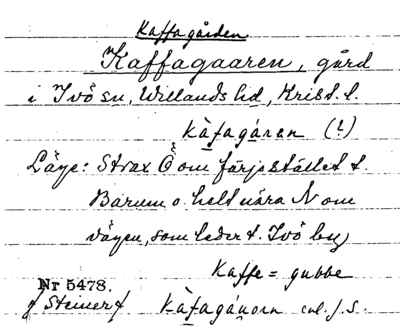 Kaffagården
Kaffagaaren, gård
i Ivö sn, Willands hd, Krist. l.
kàfagáren (!)
Läge: Strax Ö om färjestället t.
Barum o. helt nära N om
vägen, som leder t. Ivö by
Kaffe = gubbe
Nr 5478.
kàfagáuorn enl. J. S.